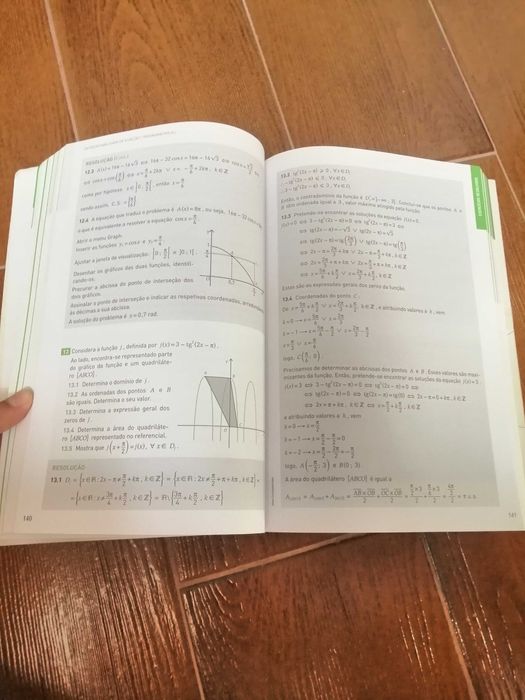 RESOLUÇÃO (Cont.)
12.3 A(x) = 16π − 16√3 ⇔ 16π − 32 cos x = 16π − 16√3 ⇔ cos x = √3/2 ⇔
⇔ cos x = cos(π/6) ⇔ x = π/6 + 2kπ ∨ x = −π/6 + 2kπ, k ∈ ℤ
como por hipótese x ∈ [0, π/2[, então x = π/6
sendo assim, C.S. = {π/6}
12.4 A equação que traduz o problema é A(x) = 8π, ou seja, 16π − 32 cos x
o que é equivalente a resolver a equação cos x = π/4
Abrir o menu Graph.
Inserir as funções y₁ = cos x e y₂ = π/4.
Ajustar a janela de visualização: [0; π/2] × [0; 1].
Desenhar os gráficos das duas funções, identifi-
cando-os.
Procurar a abcissa do ponto de interseção dos
dois gráficos.
Assinalar o ponto de interseção e indicar as respetivas coordenadas,
às décimas a sua abcissa.
A solução do problema é x ≈ 0,7 rad.
13 Considera a função f, definida por f(x) = 3 − tg²(2x − π).
Ao lado, encontra-se representado parte
do gráfico da função e um quadriláte-
ro [ABCO].
13.1 Determina o domínio de f.
13.2 As ordenadas dos pontos A e B
são iguais. Determina o seu valor.
13.3 Determina a expressão geral dos
zeros de f.
13.4 Determina a área do quadriláte-
ro [ABCO] representado no referencial.
13.5 Mostra que f(x + π/2) = f(x), ∀x ∈ D_f.
RESOLUÇÃO
13.1 D_f = {x ∈ ℝ : 2x − π ≠ π/2 + kπ, k ∈ ℤ} = {x ∈ ℝ : 2x ≠ π/2 + π + kπ, k ∈ ℤ} =
= {x ∈ ℝ : x ≠ 3π/4 + k π/2, k ∈ ℤ} = ℝ\{3π/4 + k π/2, k ∈ ℤ}
140
13.2 tg²(2x − π) ≥ 0, ∀x ∈ D_f
⇔ −tg²(2x − π) ≤ 0, ∀x ∈ D_f
⇔ 3 − tg²(2x − π) ≤ 3, ∀x ∈ D_f
Então, o contradomínio da função é D'_f = ]−∞, 3]. Conclui-se que os pontos A e
B têm ordenada igual a 3, valor máximo atingido pela função.
13.3 Pretende-se encontrar as soluções da equação f(x) = 0.
f(x) = 0 ⇔ 3 − tg²(2x − π) = 0 ⇔ tg²(2x − π) = 3 ⇔
Estas são as expressões gerais dos zeros da função.
13.4 Coordenadas do ponto C:
logo, C(π/6, 0).
Precisamos de determinar as abcissas dos pontos A e B. Esses valores são maxi-
mizantes da função. Então, pretende-se encontrar as soluções da equação f(x) = 3.
f(x) = 3 ⇔ 3 − tg²(2x − π) = 3 ⇔ tg²(2x − π) = 0 ⇔
⇔ tg(2x − π) = 0 ⇔ tg(2x − π) = tg(0) ⇔ 2x − π = 0 + kπ, k ∈ ℤ ⇔
⇔ 2x = π + kπ, k ∈ ℤ ⇔ x = π/2 + k π/2, k ∈ ℤ
e atribuindo valores a k, vem
k = 0 → x = π/2
k = −1 → x = π/2 − π/2 = 0
k = −2 → x = π/2 − 2π/2 = −π/2
logo, A(−π/2; 3) e B(0; 3).
A área do quadrilátero [ABCO] é igual a
141